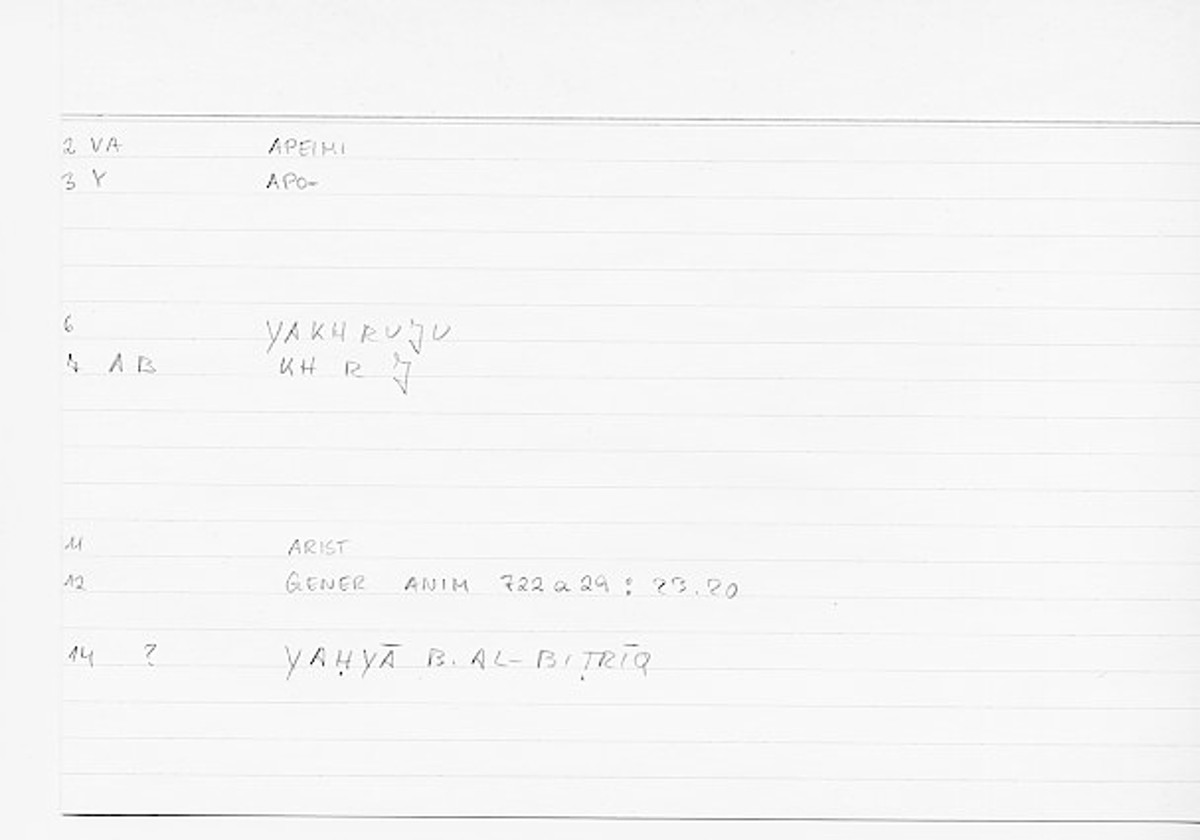 2 VA APEIMI
3 Y APO-
6 YAKHRUǦU
7 AB KH R Ǧ
11 ARIST
12 GENER ANIM 722a29 : 23.20
14 ? YAḤYĀ B. AL-BIṬRĪQ